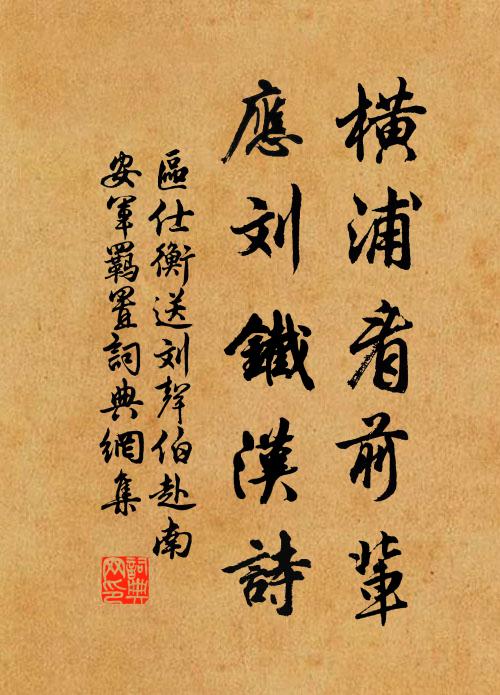 橫浦看前輩
應刘鐵漢詩
區仕衡送刘聲伯赴南
安軍羈置詞典網集
詞典網印